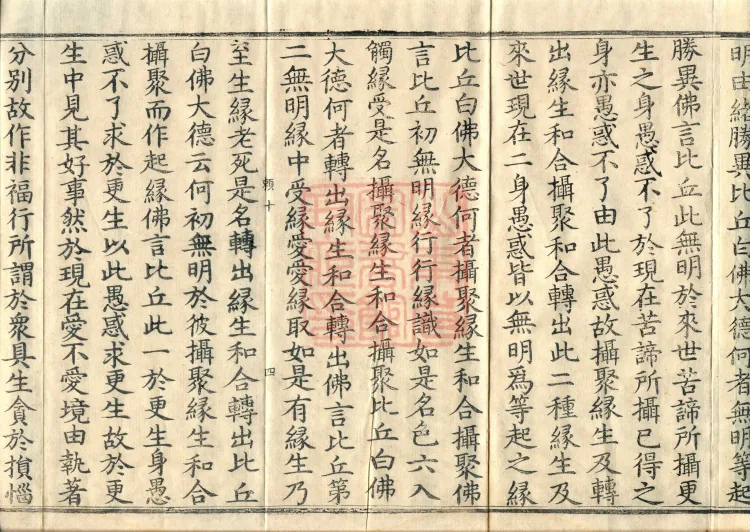 明由緒勝異比丘白佛大德何者無明等起
勝異佛言比丘此無明於來世苦諦所攝更
生之身愚惑不了於現在苦諦所攝已得之
身亦愚惑不了由此愚惑故攝聚緣生及轉
出緣生和合攝聚和合轉出此二種緣生及
來世現在二身愚惑皆以無明為等起之緣
比丘白佛大德何者攝聚緣生和合攝聚佛
言比丘初無明緣行行緣識如是名色六入
觸緣受是名攝聚緣生和合攝聚比丘白佛
大德何者轉出緣生和合轉出佛言比丘第
二無明緣中受緣愛愛緣取如是有緣生乃
至生緣老死是名轉出緣生和合轉出比丘
白佛大德云何初無明於彼攝聚緣生和合
攝聚而作起緣佛言比丘此一於更生身愚
惑不了求於更生以此愚惑求更生故於更
生中見其好事然於現在愛不愛境由執著
分別故作非福行所謂於眾具生貪於損惱
四